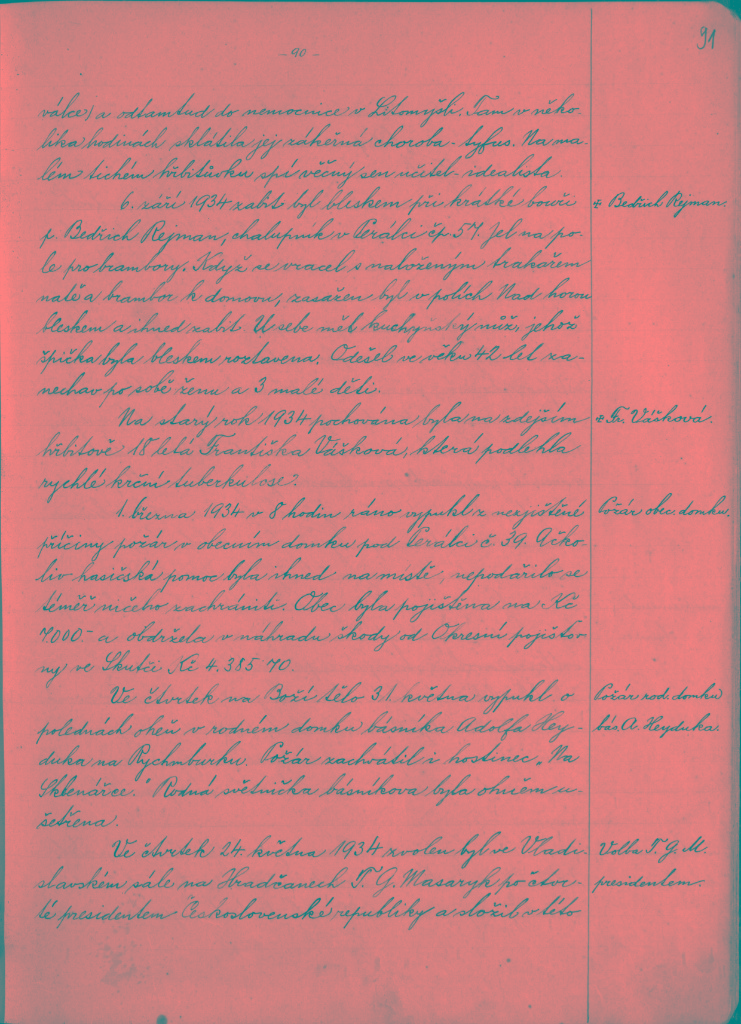 - 90 -
91
válce) a odtamtud do nemocnice v Litomyšli. Tam v něko-
lika hodinách sklátila jej zákeřná choroba - tyfus. Na ma-
lém tichém hřbitůvku spí věčný sen učitel - idealista.
6. září 1934 zabit byl bleskem při krátké bouři
p. Bedřich Rejman, chalupník v Perálci čp 57. Jel na po-
le pro brambory. Když se vracel s naloženým trakařem
natě a brambor k domovu, zasažen byl v polích Nad horou
bleskem a ihned zabit. U sebe měl kuchyňský nůž, jehož
špička byla bleskem roztavena. Odešel ve věku 42 let za-
nechav po sobě ženu a 3 malé děti.
Bedřich Rejman.
Na starý rok 1934 pochována byla na zdejším
hřbitově 18 letá Františka Vášková, která podlehla
rychlé krční tuberkulose.
Fr. Vášková.
1. března 1934 v 8 hodin ráno vypukl z nezjištěné
příčiny požár v obecním domku pod Perálci č. 39. Ačko-
liv hasičská pomoc byla ihned na místě, nepodařilo se
téměř ničeho zachrániti. Obec byla pojištěna na Kč
7.000.- a obdržela v náhradu škody od Okresní pojišťov-
ny ve Skutči Kč 4.385 70.
Požár obec. domku.
Ve čtvrtek na Boží tělo 31. května vypukl o
polednách oheň v rodném domku básníka Adolfa Hey-
duka na Rychmburku. Požár zachvátil i hostinec „Na
Sklenářce." Rodná světnička básníkova byla ohněm u-
šetřena.
Požár rod. domku
bás. A. Heyduka.
Ve čtvrtek 24. května 1934 zvolen byl ve Vladi-
slavském sále na Hradčanech T. G. Masaryk po čtvr-
té presidentem Československé republiky a složil v této
Volba T. G. M.
presidentem.